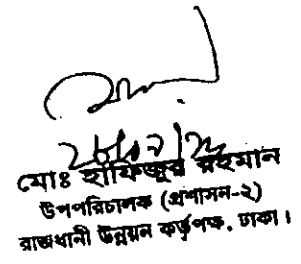 মোঃ হাফিজুর রহমান
উপপরিচালক (প্রশাসন-২)
রাজধানী উন্নয়ন কর্তৃপক্ষ, ঢাকা।